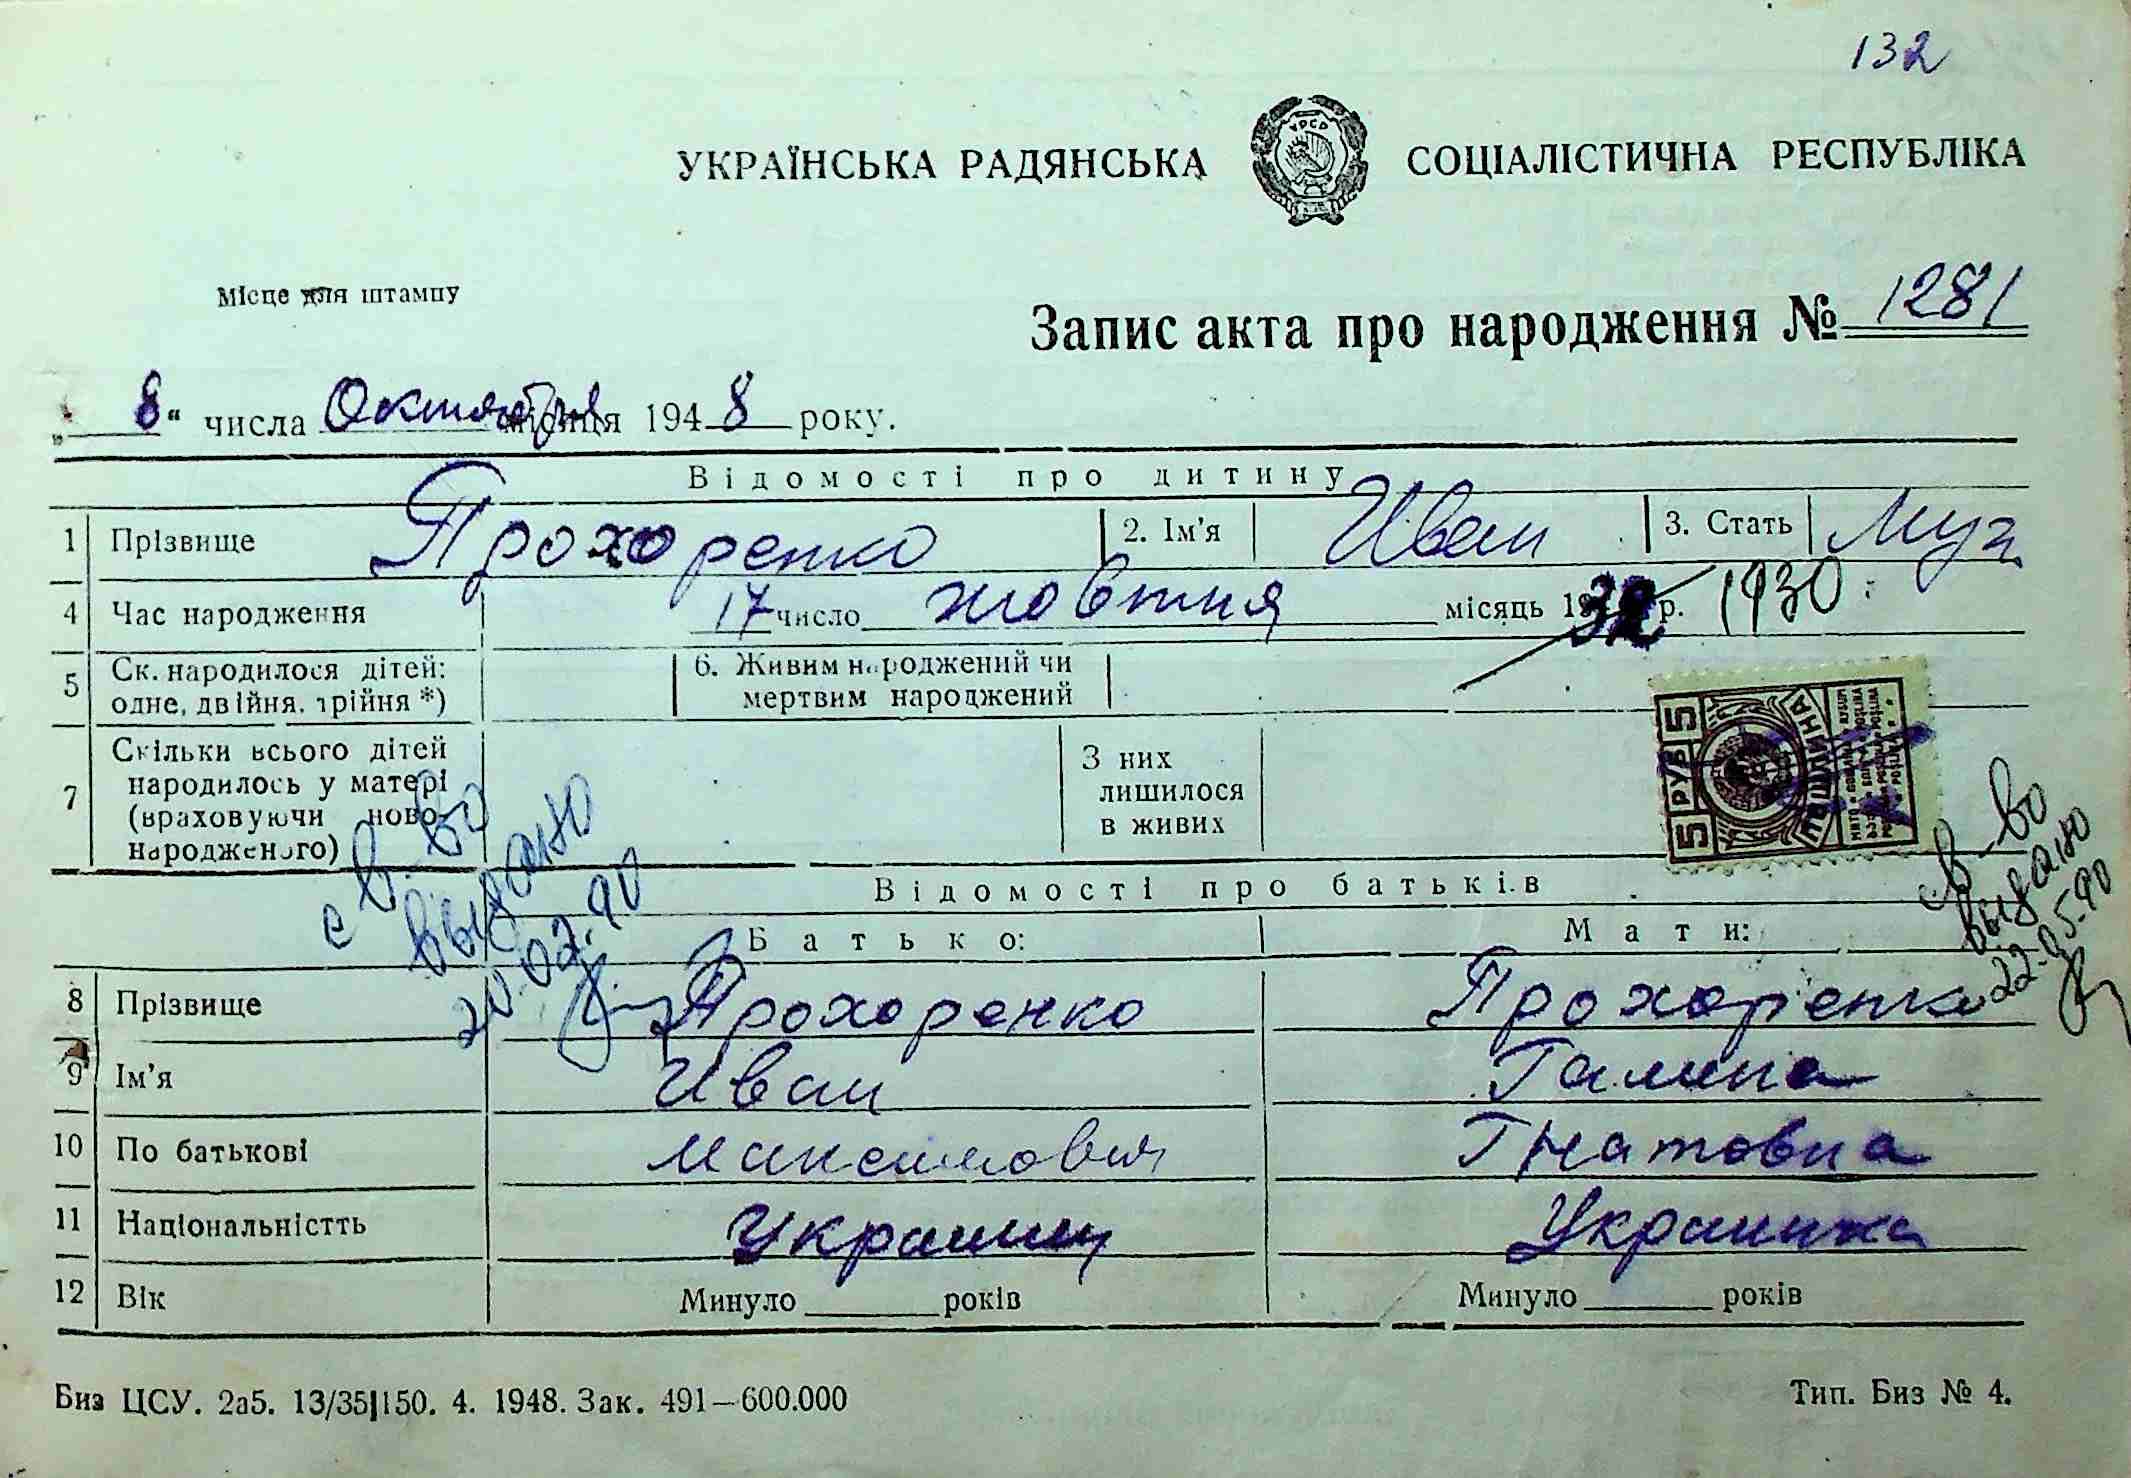 132
УКРАЇНСЬКА РАДЯНСЬКА СОЦІАЛІСТИЧНА РЕСПУБЛІКА
УРСР
Місце для штампу
Запис акта про народження № 1281
„ 8 “ числа Октября місяця 194 8 року.
Відомості про дитину
1 Прізвище Прохоренко 2. Ім'я Иван 3. Стать Муж
4 Час народження 17 число жовтня місяць 19 р. 1930
5 Ск. народилося дітей: одне, двійня, трійня *) 6. Живим народжений чи мертвим народжений
7 Скільки всього дітей народилось у матері (враховуючи новонародженого) З них лишилося в живих
5 РУБ 5
ПОШЛИНА
с в-во
выдано
20.02.90
св-во
выдано
22.05.90
Відомості про батьків
Батько: Мати:
8 Прізвище Прохоренко Прохоренко
9 Ім'я Иван Галина
10 По батькові Максимович Гнатовна
11 Національністть Украинец Украинка
12 Вік Минуло ______ років Минуло ______ років
Биз ЦСУ. 2а5. 13/35|150. 4. 1948. Зак. 491—600.000 Тип. Биз № 4.